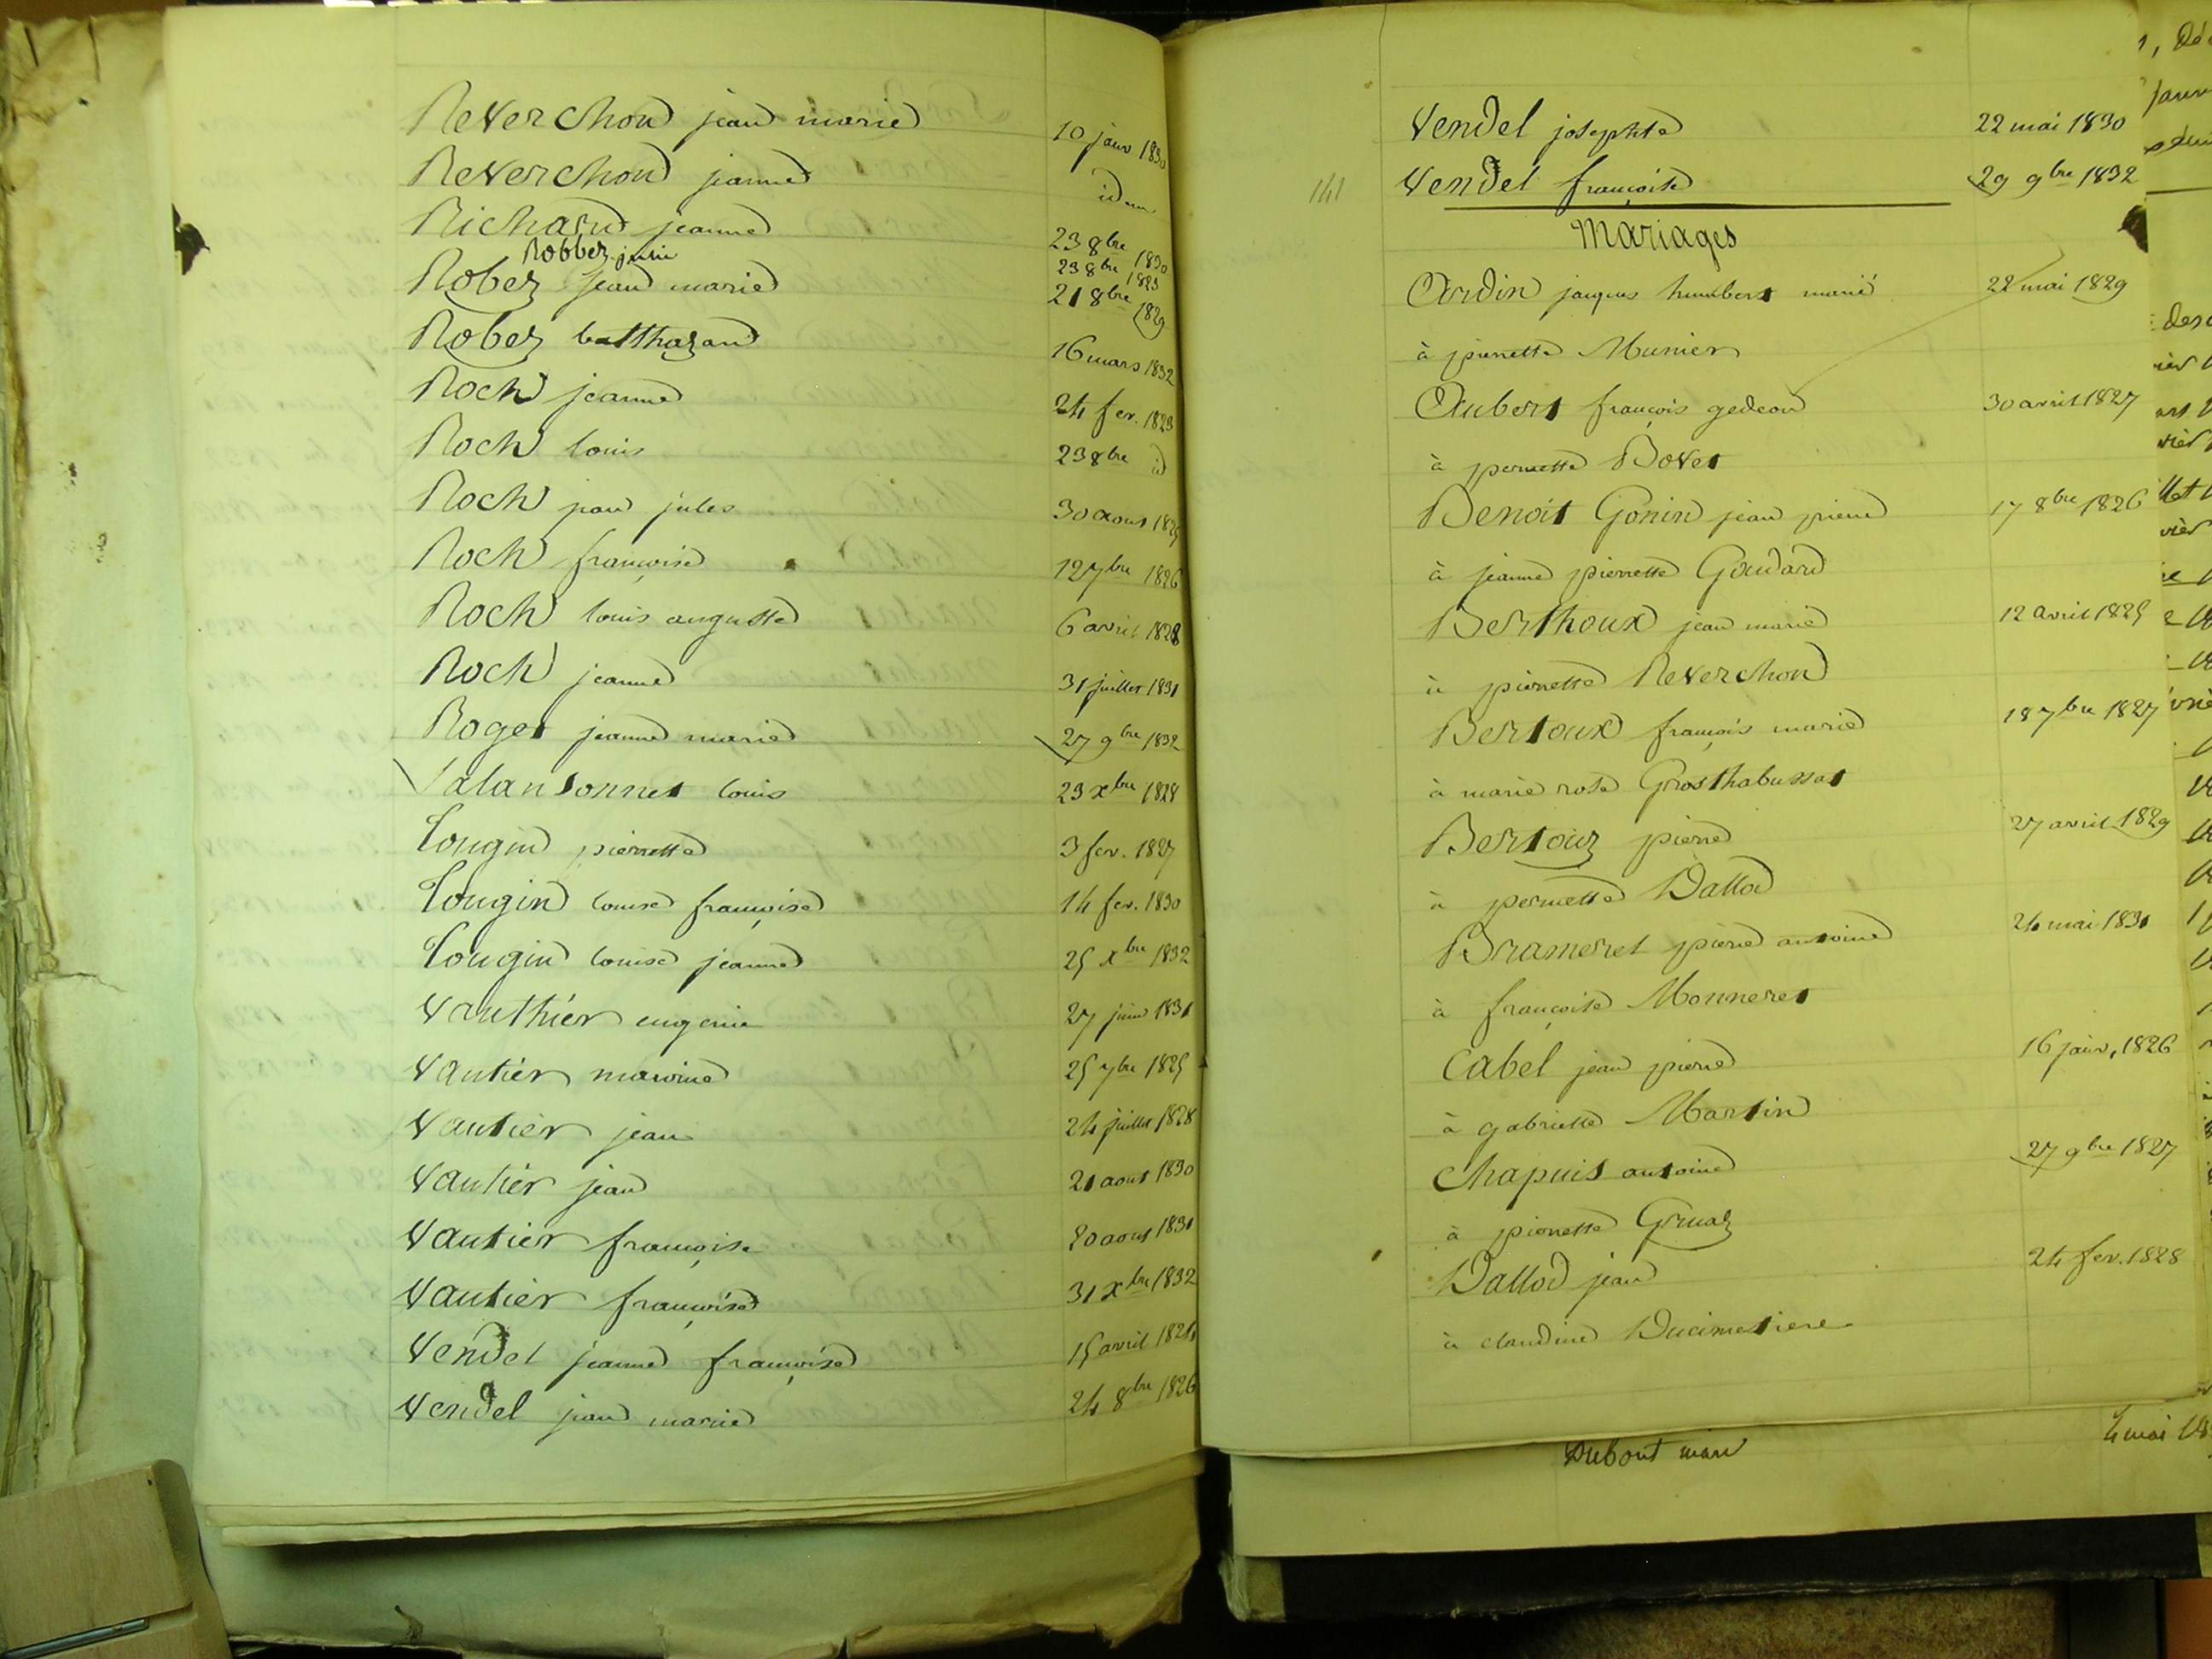 Reverchon jean marie 10 janv 1830
Reverchon jeanne idem
Richard jeanne 23 8bre 1830
Robbez julie 23 8bre 1823
Robez jean marie 21 8bre 1829
Robez balthazard 16 mars 1832
Roch jeanne 24 fev. 1823
Roch louis 23 8bre id
Roch jules 30 aout 1825
Roch françoise 12 7bre 1826
Roch louis auguste 6 avril 1828
Roch jeanne 31 juillet 1831
Roget jeanne marie 27 9bre 1832
Salansonnet louis 23 xbre 1828
Tougin pierrette 3 fev. 1827
Tougin louise françoise 14 fev. 1830
Tougin louise jeanne 25 xbre 1832
Vauthier eugenie 27 juin 1831
Vautier 25 7bre 1825
Vautier jean 24 juillet 1828
Vautier jean 21 aout 1830
Vautier françoise 20 aout 1831
Vautier françoise 31 xbre 1832
Vendel jeanne françoise 15 avril 1824
Vendel jean marie 24 8bre 1826
Vendel josephte 22 mai 1830
141 Vendel françoise 29 9bre 1832
Mariages
Ardin jaques humbert marié 22 mai 1829
à pierrette Munier
Aubert françois gedeon 30 avril 1827
à pernette Bovet
Benoit Gonin jean pierre 17 8bre 1826
à jeanne pierrette Goudard
Berthoux jean marie 12 avril 1825
à pierrette Reverchon
Bertoux françois marie 18 7bre 1827
à marie rose Grosthabussat
Bertouz pierre 27 avril 1829
à pernette Dallod
Brameret pierre antoine 24 mai 1831
à françoise Monneret
Cabel jean pierre 16 janv, 1826
à gabrielle Martin
Chapuis antoine 27 9bre 1827
à pierrette Gruaz
Dallod jean 24 fev. 1828
à claudine Ducimetiere
Dubout marie 4 mai